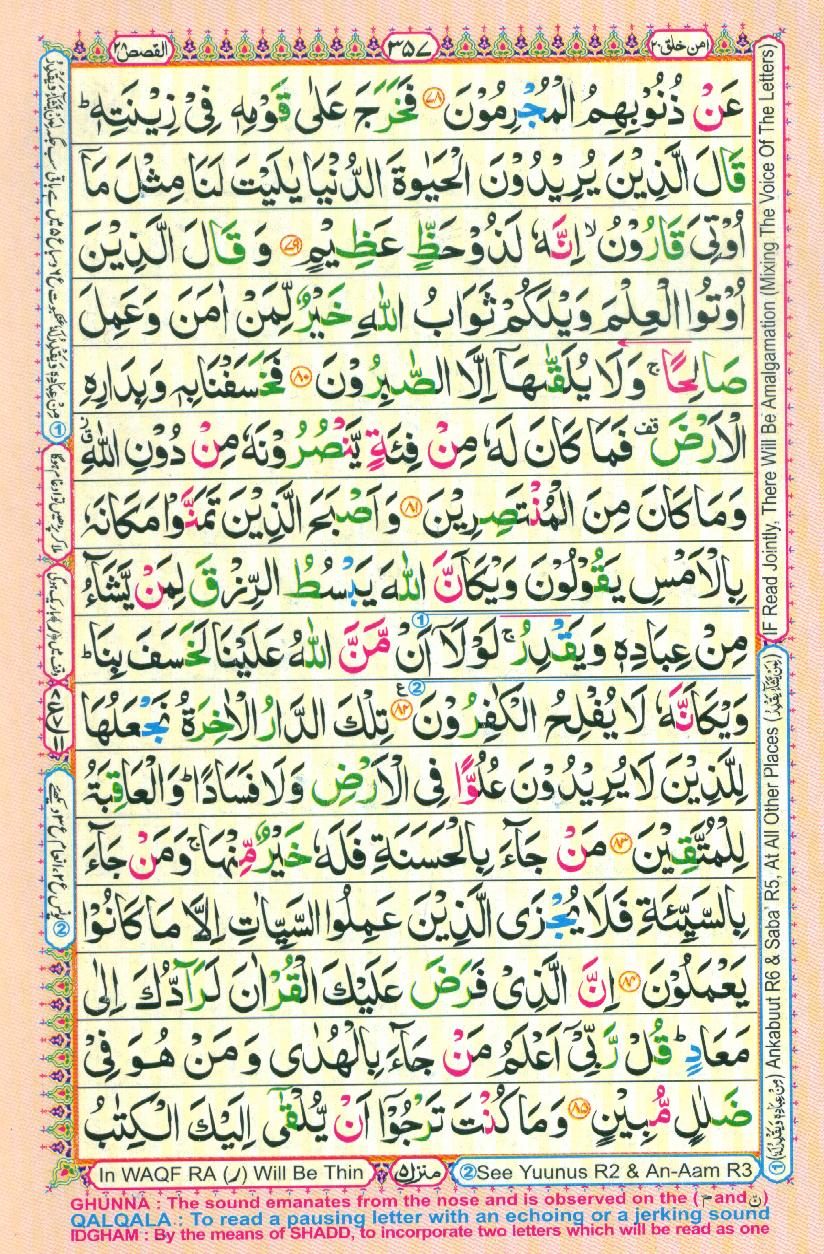 امن خلق ٢٠
٣٥٧
القصص ٢٨
عَنْ ذُنُوْبِهِمُ الْمُجْرِمُوْنَ ﴿٧٨﴾ فَخَرَجَ عَلٰى قَوْمِهٖ فِيْ زِيْنَتِهٖ ؕ
قَالَ الَّذِيْنَ يُرِيْدُوْنَ الْحَيٰوةَ الدُّنْيَا يٰلَيْتَ لَنَا مِثْلَ مَاۤ
اُوْتِيَ قَارُوْنُ ۙ اِنَّهٗ لَذُوْ حَظٍّ عَظِيْمٍ ﴿٧٩﴾ وَ قَالَ الَّذِيْنَ
اُوْتُوا الْعِلْمَ وَيْلَكُمْ ثَوَابُ اللّٰهِ خَيْرٌ لِّمَنْ اٰمَنَ وَعَمِلَ
صَالِحًا ۚ وَلَا يُلَقّٰىهَاۤ اِلَّا الصّٰبِرُوْنَ ﴿٨٠﴾ فَخَسَفْنَا بِهٖ وَبِدَارِهِ
الْاَرْضَ ۫ فَمَا كَانَ لَهٗ مِنْ فِئَةٍ يَّنْصُرُوْنَهٗ مِنْ دُوْنِ اللّٰهِ ۗ
وَمَا كَانَ مِنَ الْمُنْتَصِرِيْنَ ﴿٨١﴾ وَاَصْبَحَ الَّذِيْنَ تَمَنَّوْا مَكَانَهٗ
بِالْاَمْسِ يَقُوْلُوْنَ وَيْكَاَنَّ اللّٰهَ يَبْسُطُ الرِّزْقَ لِمَنْ يَّشَآءُ
مِنْ عِبَادِهٖ وَيَقْدِرُ ۚ لَوْلَاۤ اَنْ مَّنَّ اللّٰهُ عَلَيْنَا لَخَسَفَ بِنَا ؕ
وَيْكَاَنَّهٗ لَا يُفْلِحُ الْكٰفِرُوْنَ ﴿٨٢﴾ تِلْكَ الدَّارُ الْاٰخِرَةُ نَجْعَلُهَا
لِلَّذِيْنَ لَا يُرِيْدُوْنَ عُلُوًّا فِي الْاَرْضِ وَلَا فَسَادًا ؕ وَالْعَاقِبَةُ
لِلْمُتَّقِيْنَ ﴿٨٣﴾ مَنْ جَآءَ بِالْحَسَنَةِ فَلَهٗ خَيْرٌ مِّنْهَا ۚ وَمَنْ جَآءَ
بِالسَّيِّئَةِ فَلَا يُجْزَى الَّذِيْنَ عَمِلُوا السَّيِّاٰتِ اِلَّا مَا كَانُوْا
يَعْمَلُوْنَ ﴿٨٤﴾ اِنَّ الَّذِيْ فَرَضَ عَلَيْكَ الْقُرْاٰنَ لَرَآدُّكَ اِلٰى
مَعَادٍ ؕ قُلْ رَّبِّيْۤ اَعْلَمُ مَنْ جَآءَ بِالْهُدٰى وَ مَنْ هُوَ فِيْ
ضَلٰلٍ مُّبِيْنٍ ﴿٨٥﴾ وَمَا كُنْتَ تَرْجُوْۤا اَنْ يُّلْقٰۤى اِلَيْكَ الْكِتٰبُ
IF Read Jointly, There Will Be Amalgamation (Mixing The Voice Of The Letters)
① (مِنْ عِبَادِهٖ وَيَقْدِرُ لَهٗ) Ankabuut R6 & Saba' R5, At All Other Places (لِمَنْ يَّشَآءُ وَيَقْدِرُ)
In WAQF RA (ر) Will Be Thin
منزل ٥
② See Yuunus R2 & An-Aam R3
GHUNNA : The sound emanates from the nose and is observed on the (م and ن)
QALQALA : To read a pausing letter with an echoing or a jerking sound
IDGHAM : By the means of SHADD, to incorporate two letters which will be read as one